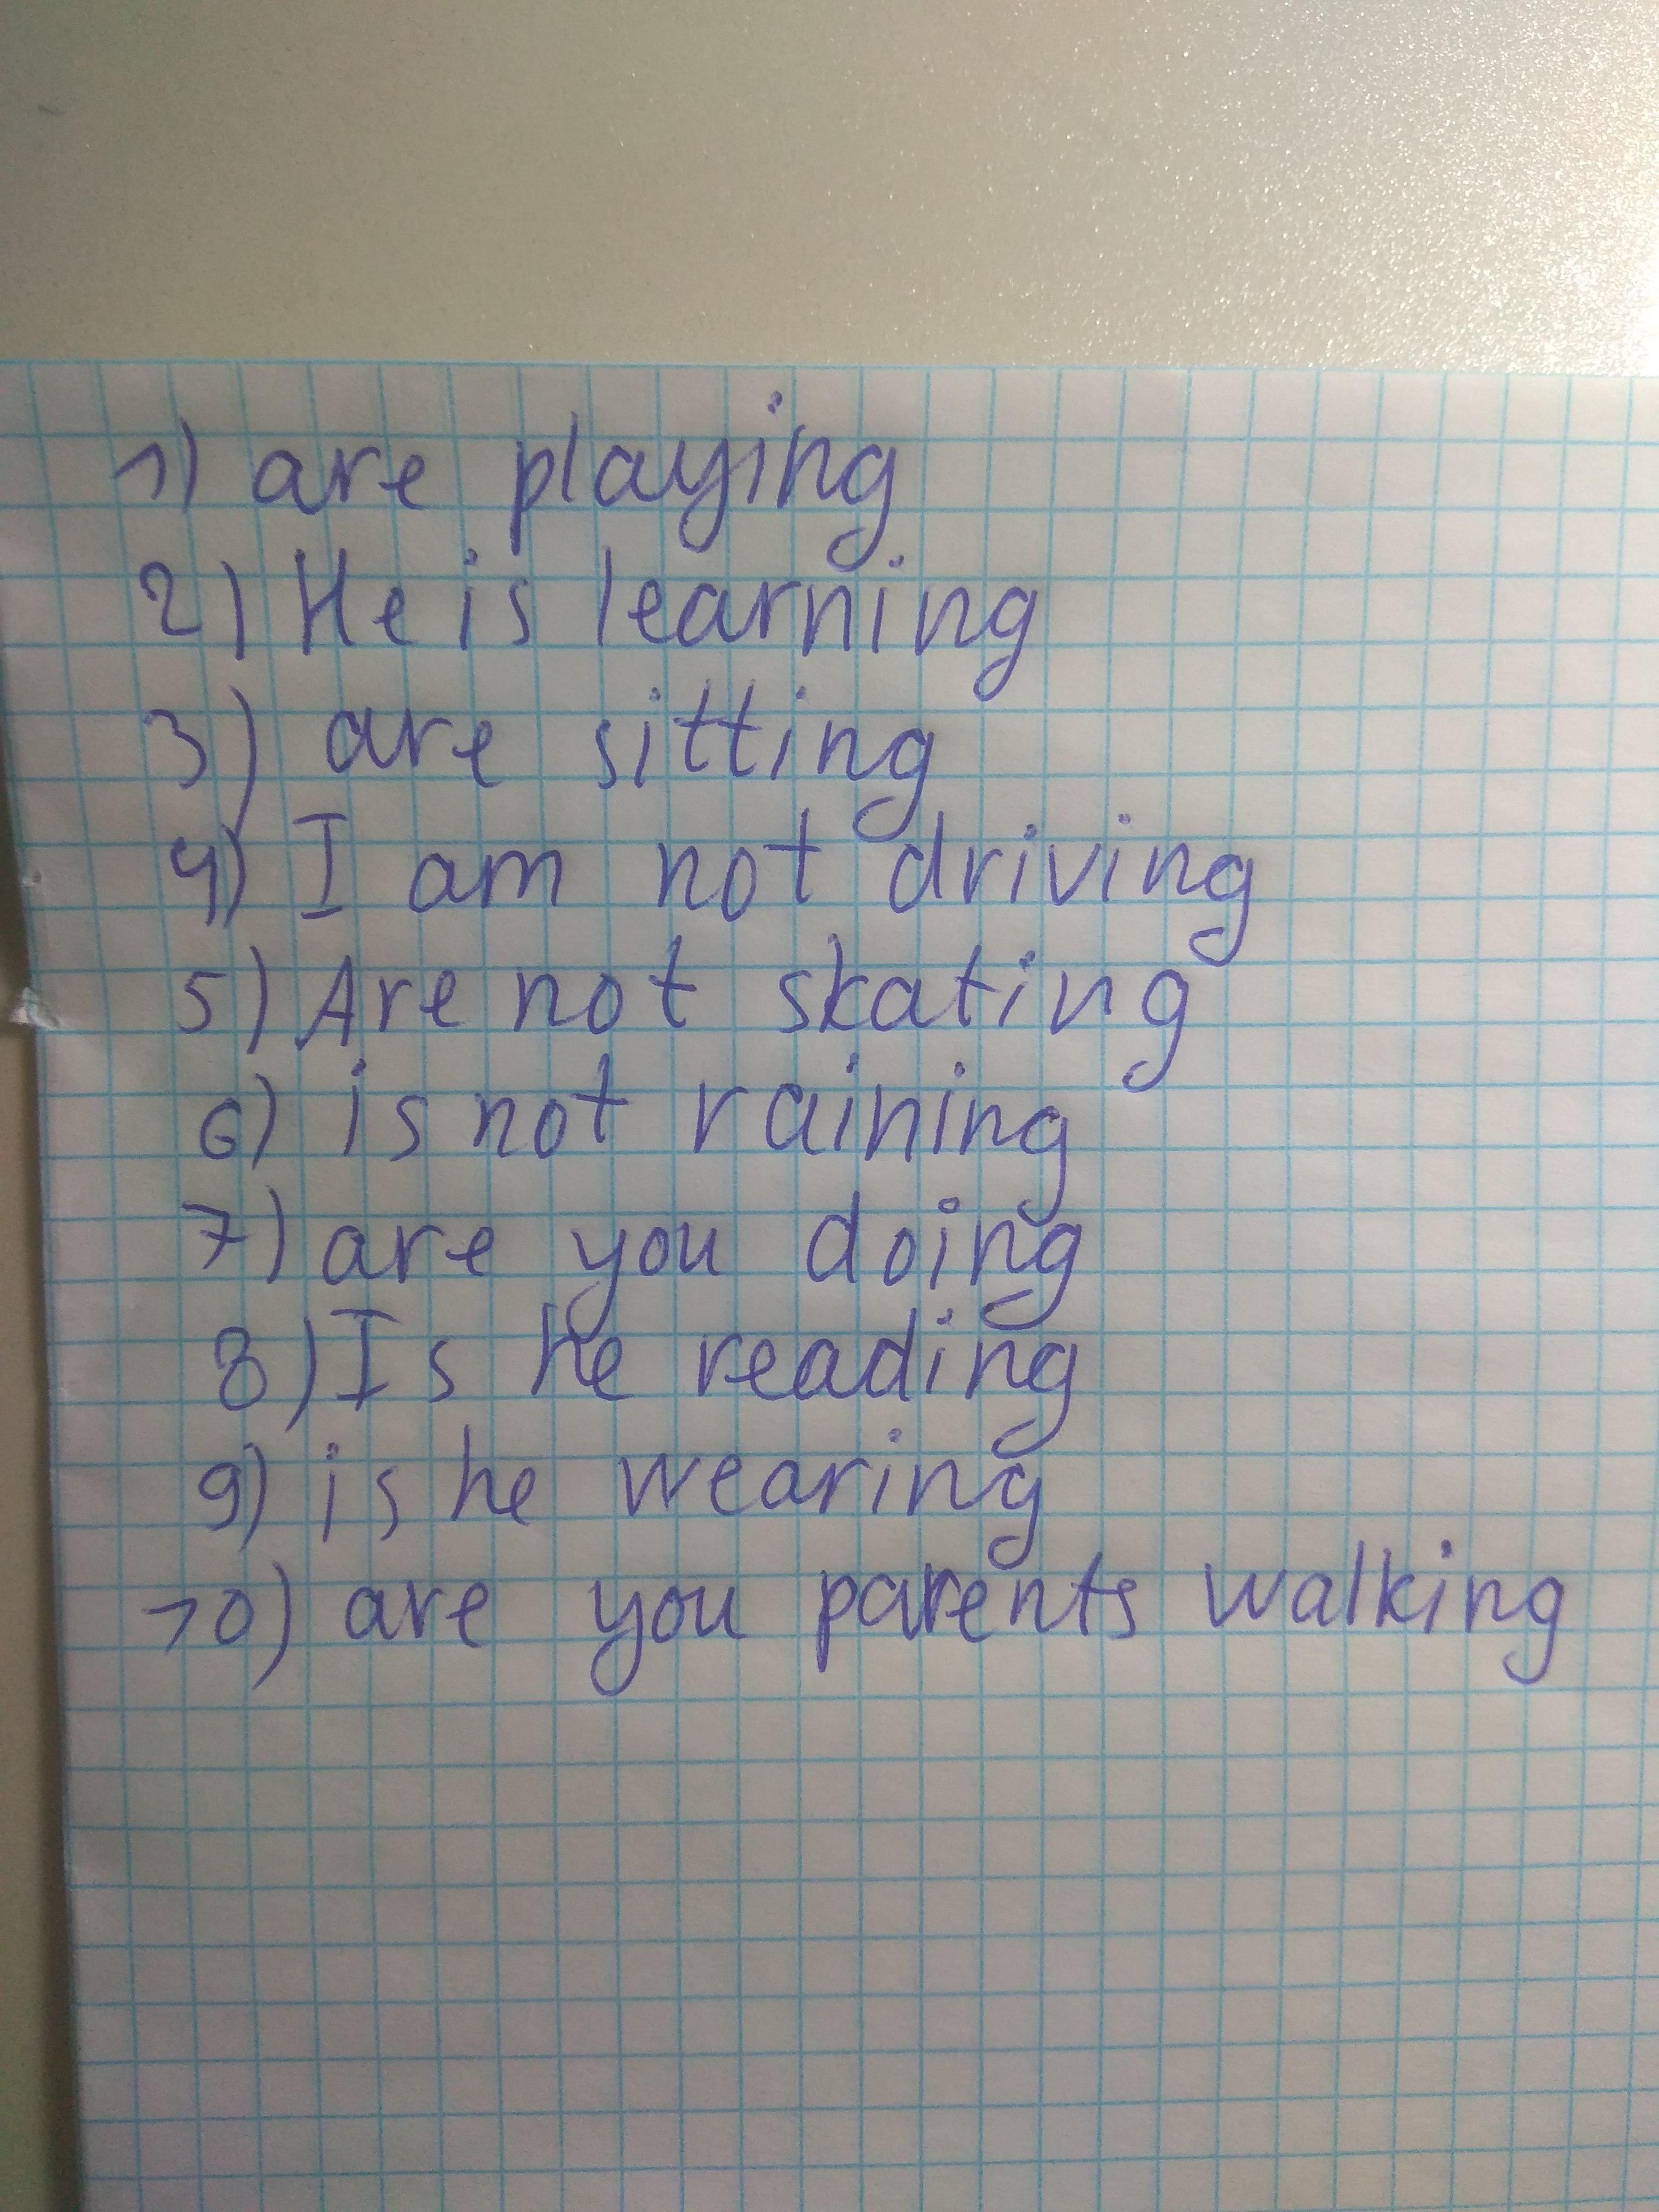 1) are playing
2) He is learning
3) are sitting
4) I am not driving
5) Are not skating
6) is not raining
7) are you doing
8) Is he reading
9) is he wearing
10) are you parents walking